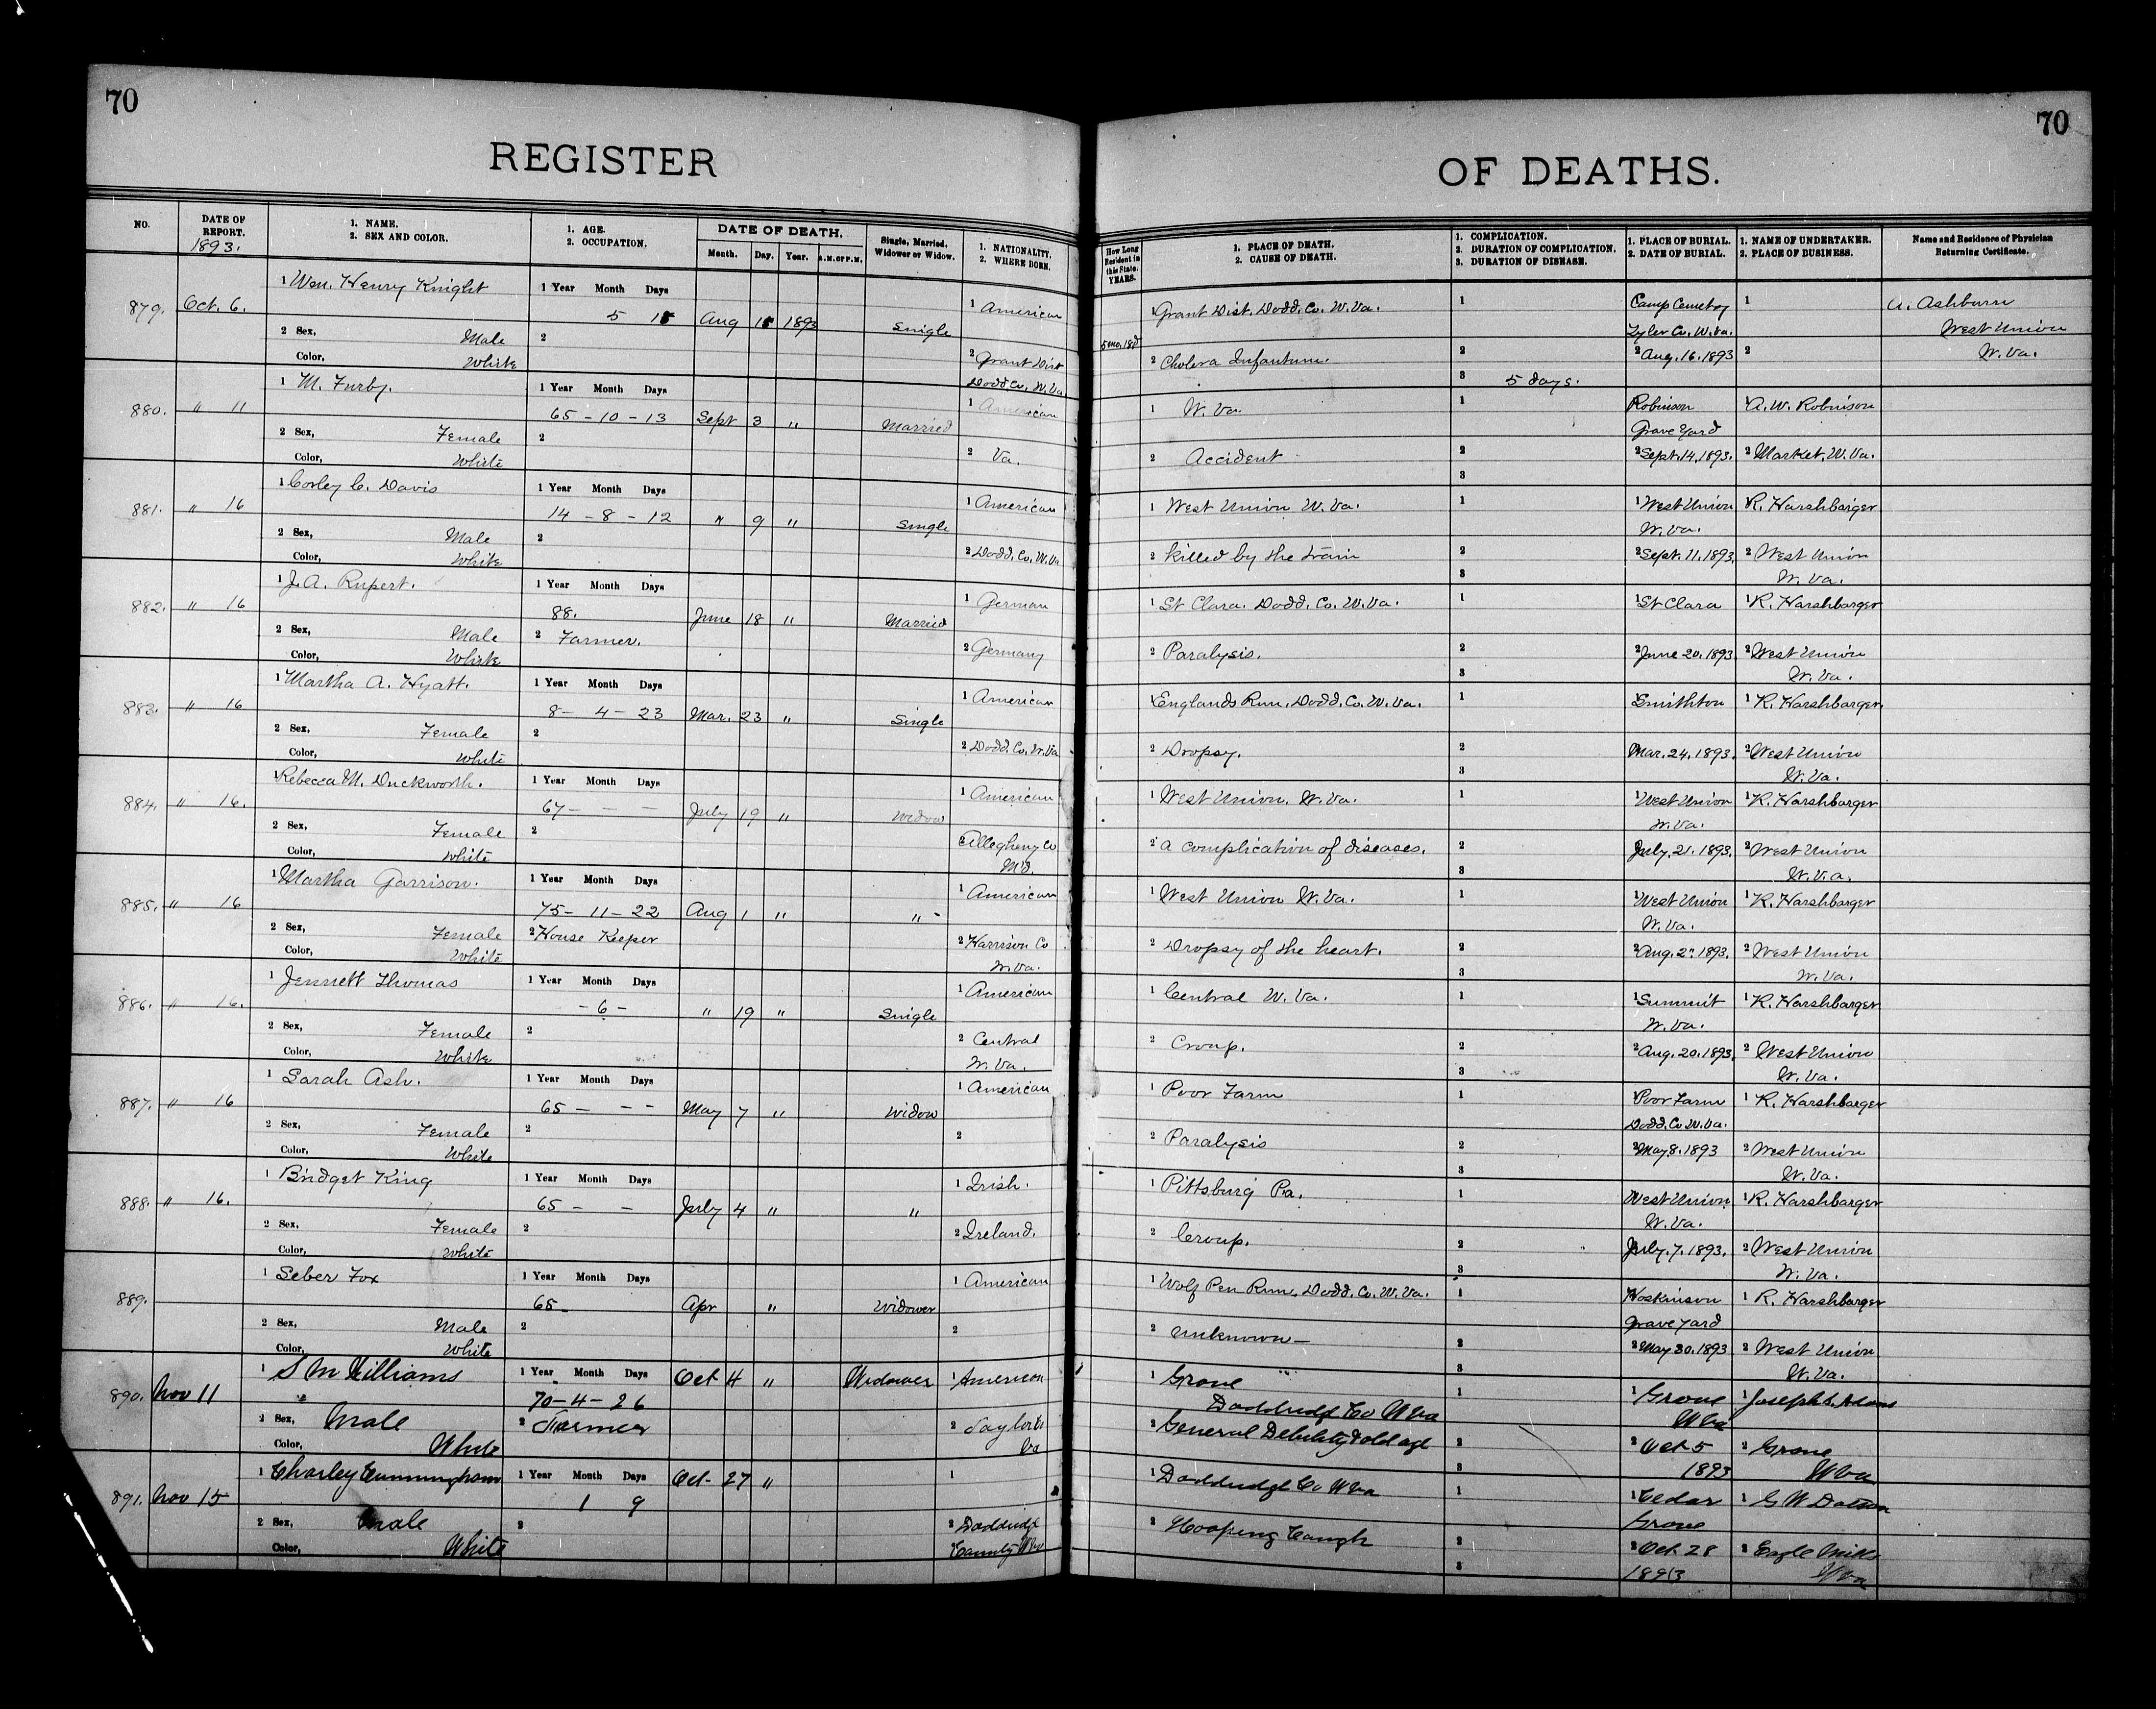 70
REGISTER
NO.
DATE OF REPORT.
1893.
1. NAME.
2. SEX AND COLOR.
1. AGE.
2. OCCUPATION.
DATE OF DEATH.
Month. Day. Year. A.M. OF P.M.
Single, Married,
Widower or Widow.
1. NATIONALITY.
2. WHERE BORN.
70
OF DEATHS.
How Long Resident in this State. YEARS.
1. PLACE OF DEATH.
2. CAUSE OF DEATH.
1. COMPLICATION.
2. DURATION OF COMPLICATION.
3. DURATION OF DISEASE.
1. PLACE OF BURIAL.
2. DATE OF BURIAL.
1. NAME OF UNDERTAKER.
2. PLACE OF BUSINESS.
Name and Residence of Physician
Returning Certificate.
879. Oct. 6.
1 Wm. Henry Knight
2 Sex, Male
Color, White
1 Year Month Days
5
2
Aug 1893
Single
1 American
2 Grant Dist
Dodd Co, W. Va
5 mo. 18 d
1 Grant Dist. Dodd. Co. W. Va.
2 Cholera Infantum.
1
2
3 5 days.
Camp Cemetery
Tyler Co. W. Va.
2 Aug. 16. 1893
1
2
A. Ashburn
West Union
W. Va.
880. " 11
1 M. Furby.
2 Sex, Female
Color, White
1 Year Month Days
65 - 10 - 13
2
Sept 3 "
Married
1 American
2 Va.
1 W. Va.
2 Accident
1
2
3
Robinson
Grave Yard
2 Sept. 14. 1893.
1 A. W. Robinson
2 Market, W. Va.
881. " 16
1 Corley C. Davis
2 Sex, Male
Color, White
1 Year Month Days
14 - 8 - 12
2
" 9 "
Single
1 American
2 Dodd. Co. W. Va
1 West Union W. Va.
2 Killed by the train
1
2
3
1 West Union
W. Va.
2 Sept. 11. 1893.
R. Harshbarger
2 West Union
W. Va.
882. " 16
1 J. A. Rupert.
2 Sex, Male
Color, White
1 Year Month Days
88.
2 Farmer.
June 18 "
Married
1 German
2 Germany
1 St Clara. Dodd. Co. W. Va.
2 Paralysis.
1
2
3
1 St Clara
2 June 20. 1893.
1 R. Harshbarger
2 West Union
W. Va.
883. " 16
1 Martha A. Hyatt.
2 Sex, Female
Color, White
1 Year Month Days
8 - 4 - 23
2
Mar. 23 "
Single
1 American
2 Dodd. Co. W. Va
1 Englands Run, Dodd. Co. W. Va.
2 Dropsy.
1
2
3
Smithton
Mar. 24. 1893.
1 R. Harshbarger
2 West Union
W. Va.
884. " 16.
1 Rebecca M. Duckworth.
2 Sex, Female
Color, White
1 Year Month Days
67 - - -
2
July 19 "
Widow
1 American
2 Allegheny Co
Md.
1 West Union. W. Va.
2 a complication of diseases.
1
2
3
1 West Union
W. Va.
July. 21. 1893.
1 R. Harshbarger
2 West Union
W. Va.
885. " 16
1 Martha Garrison.
2 Sex, Female
Color, White
1 Year Month Days
75 - 11 - 22
2 House Keeper
Aug 1 "
"
1 American
2 Harrison Co
W. Va.
1 West Union W. Va.
2 Dropsy of the heart.
1
2
3
1 West Union
W. Va.
2 Aug. 2" 1893.
1 R. Harshbarger
2 West Union
W. Va.
886. " 16.
1 Jennett Thomas
2 Sex, Female
Color, White
1 Year Month Days
- 6 -
2
" 19 "
Single
1 American
2 Central
W. Va.
1 Central W. Va.
2 Croup.
1
2
3
1 Summit
W. Va.
2 Aug. 20. 1893.
1 R. Harshbarger
2 West Union
W. Va.
887. " 16
1 Sarah Ash.
2 Sex, Female
Color, White
1 Year Month Days
65 - - -
2
May 7 "
Widow
1 American
2
1 Poor Farm
2 Paralysis
1
2
3
Poor Farm
Dodd. Co W. Va.
2 May 8. 1893
1 R. Harshbarger
2 West Union
W. Va.
888. " 16.
1 Bridget King
2 Sex, Female
Color, White
1 Year Month Days
65 - -
2
July 4 "
"
1 Irish.
2 Ireland.
1 Pittsburg Pa.
2 Croup.
1
2
3
West Union
W. Va.
July. 7. 1893.
1 R. Harshbarger
2 West Union
W. Va.
889.
1 Seber Fox
2 Sex, Male
Color, White
1 Year Month Days
65 -
2
Apr "
Widower
1 American
2
1 Wolf Pen Run, Dodd. Co. W. Va.
2 unknown -
1
2
3
Hoskinson
grave yard
2 May 30. 1893
1 R. Harshbarger
2 West Union
W. Va.
890. Nov 11
1 S M Williams
2 Sex, Male
Color, White
1 Year Month Days
70 - 4 - 26
2 Farmer
Oct 4 "
Widower
1 American
2
Va
1 Grove
Doddridge Co W Va
2 General Debility & old age
1
2
3
1 Grove
W Va
2 Oct 5
1893
1 Joseph
2 Grove
W Va
891. Nov 15
1 Charley Cunningham
2 Sex, Male
Color, White
1 Year Month Days
1 9
2
Oct- 27 "
1
2 Doddridge
County W Va
1 Doddridge Co W Va
2 Hooping Cough
1
2
3
1 Cedar
Grove
2 Oct 28
1893
1 G W
2 Eagle Mills
W Va